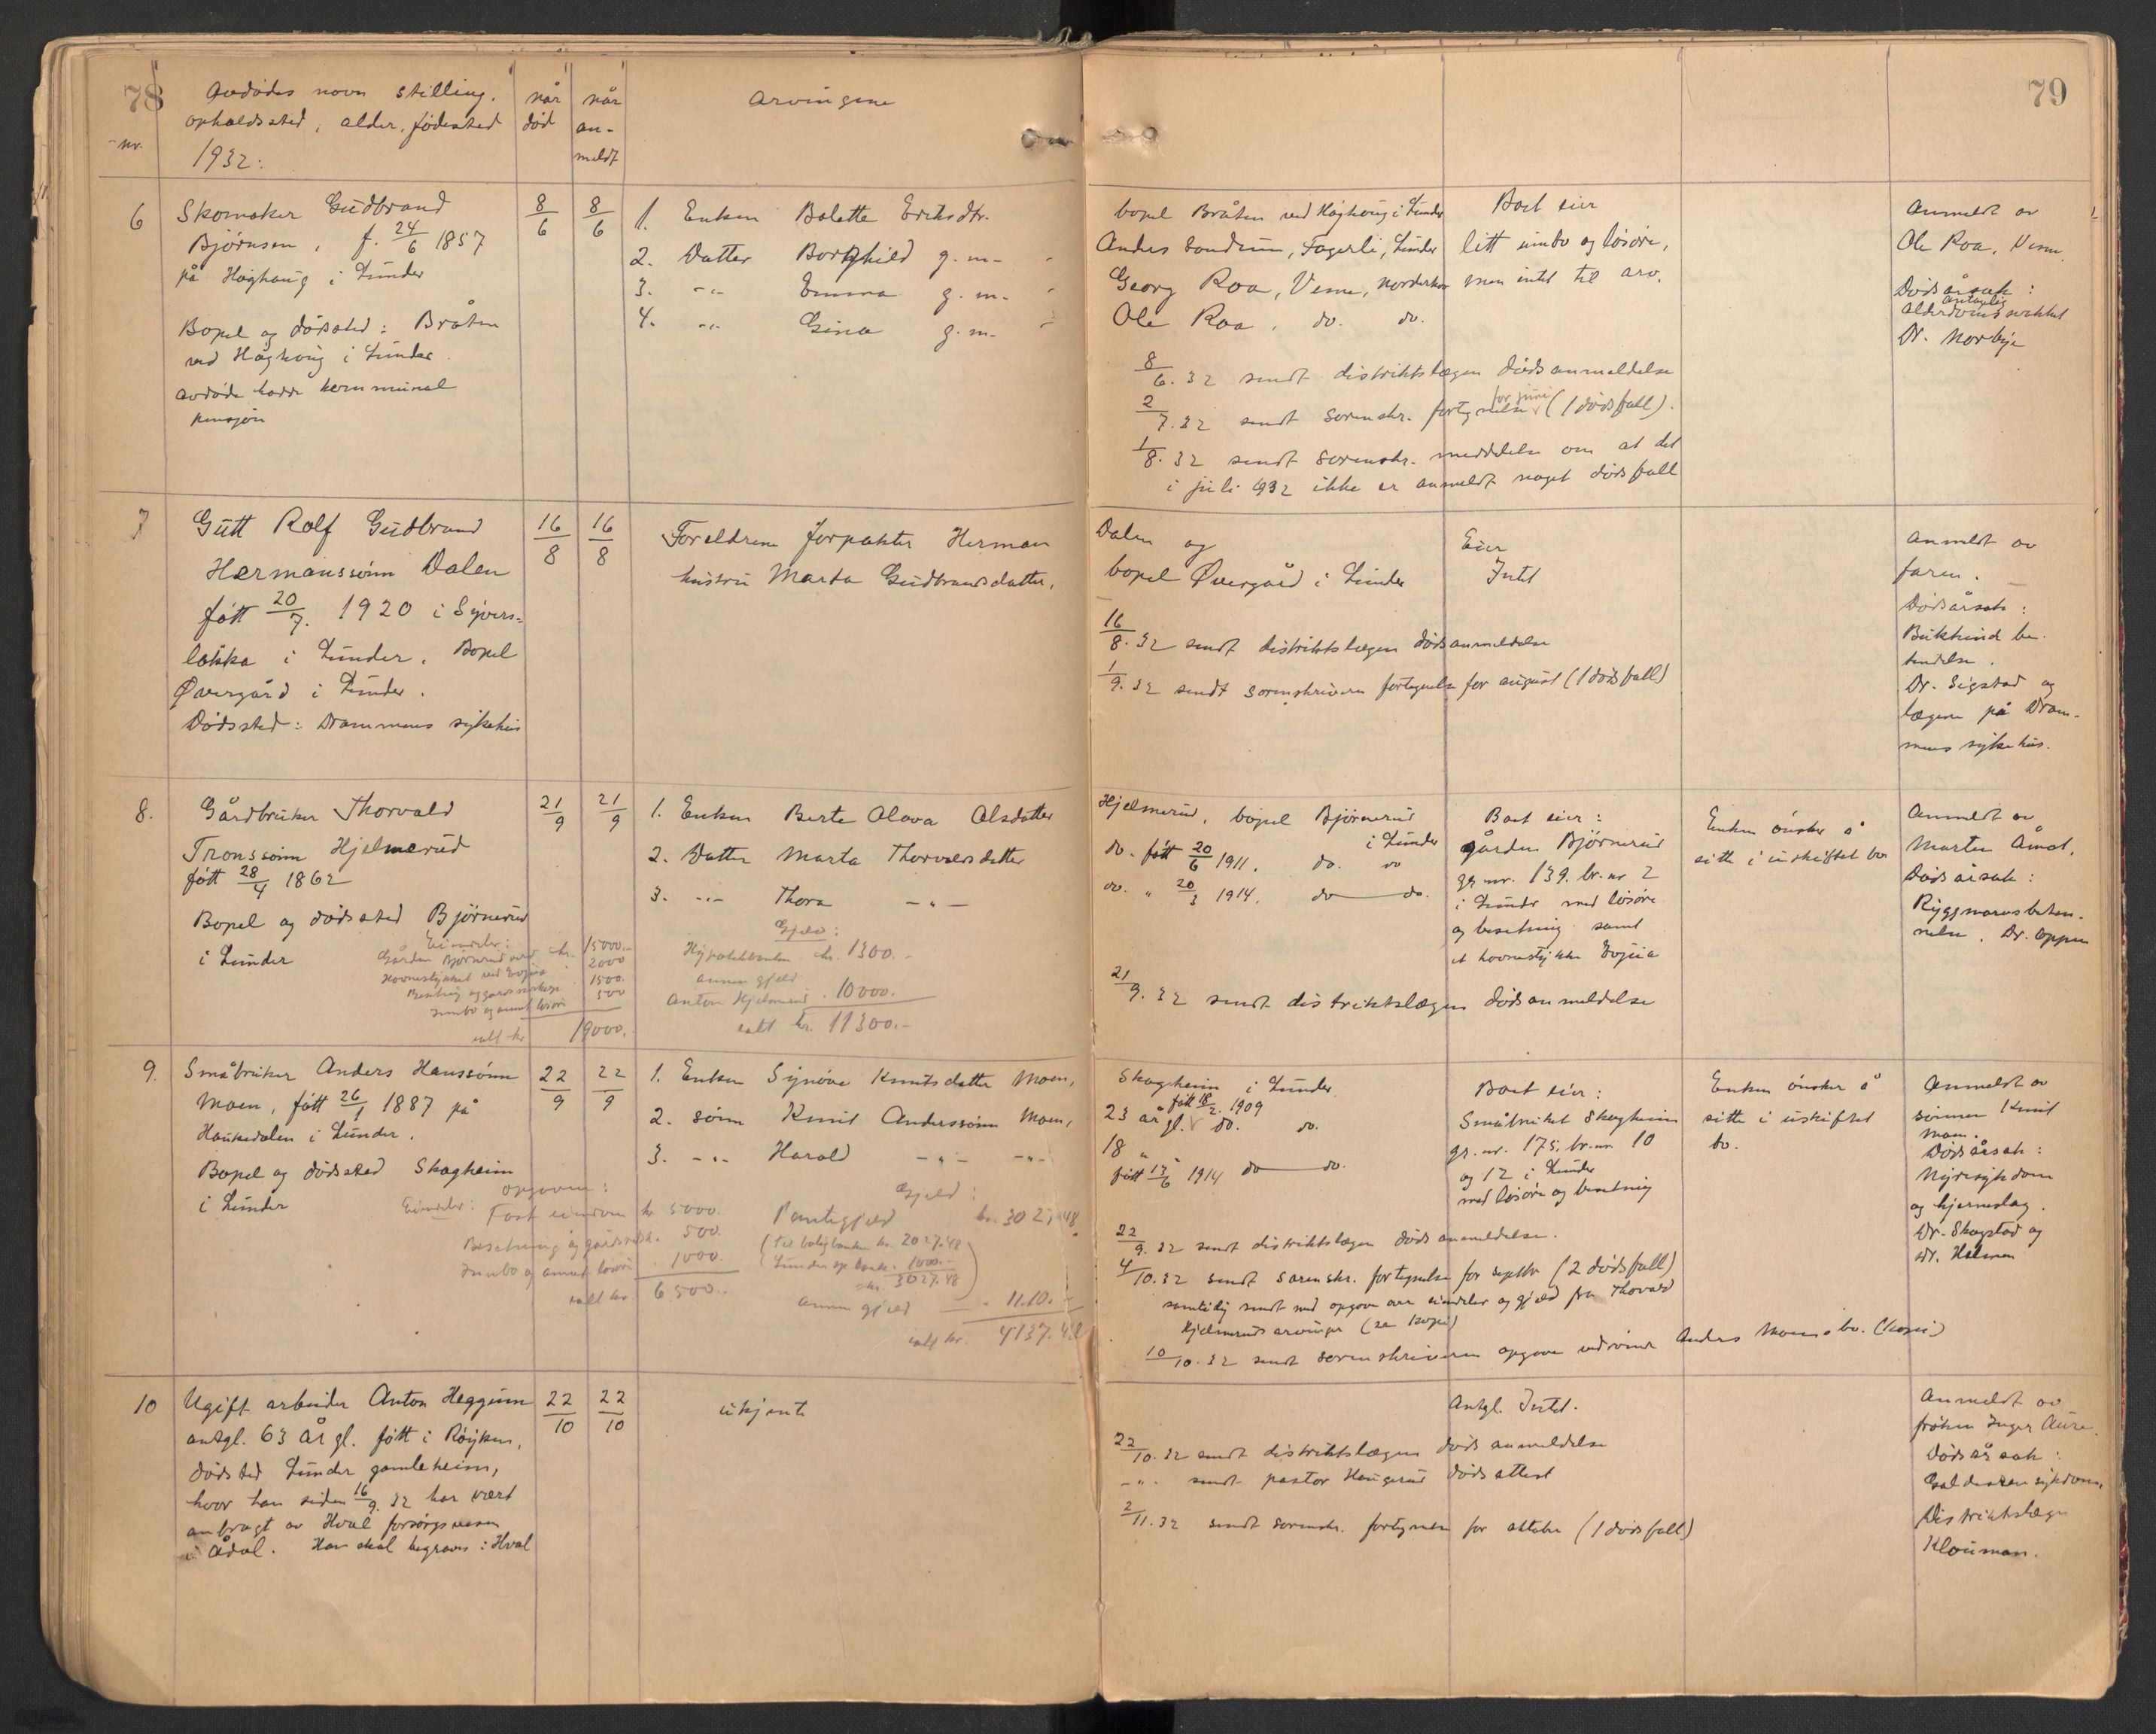 78
Avdødes navn stilling.
opholdssted, alder, fødested
nr.
1932:
når
død
når
an-
meldt
Arvingene
79
6
Skomaker Gudbrand
Bjørnsen, f. 24/6 1857
på Høghaug i Lunder
Bopel og dødssted: Bråten
ved Høghaug i Lunder.
avdøde hadde kommunal
pensjon
8/6
8/6
1. Enken Bolette Eriksdtr.
2. Datter Borghild g. m.
3. -"- Emma g. m.
4. -"- Gina g. m.
bopel Bråten ved Høghaug i Lunder
Anders Sondrum, Fagerli, Lunder
Georg Roa, Veme, Norderhov
Ole Roa, do. do.
Boet eier
litt innbo og løsøre,
men intet til arv.
8/6. 32 sendt distriktslægen dødsanmeldelse
2/7. 32 sendt sorenskr. fortegnelse for juni (1 dødsfall).
1/8. 32 sendt sorenskr. meddelelse om at det
i juli 1932 ikke er anmeldt noget dødsfall
Anmeldt av
Ole Roa, Veme.
Dødsårsak:
antagelig
alderdomssvekket
Dr. Norbye
7
Gutt Rolf Gudbrand
Hermanssønn Dalen
født 20/7. 1920 i Syvers-
løkka i Lunder. Bopel
Øvergård i Lunder.
Dødssted: Drammens sykehus
16/8
16/8
Foreldrene forpakter Herman
hustru Marta Gudbrandsdatter,
Dalen og
bopel Øvergård i Lunder
Eier
Intet
16/8. 32 sendt distriktslægen dødsanmeldelse
1/9. 32 sendt sorenskriveren fortegnelse for august (1 dødsfall)
Anmeldt av
faren.
Dødsårsak:
Bukhinnebe-
tendelse.
Dr. Sigstad og
lægene på Dram-
mens sykehus.
8.
Gårdbruker Thorvald
Tronssønn Hjelmerud
født 28/4 1862
Bopel og dødssted Bjørnerud
i Lunder
Eiendeler:
Gården Bjørnerud verd kr. 15000.-
Havnestykket ved Sogna 2000
Besetning og gårdsredskap 1500.
Innbo og annet løsøre 500
ialt kr 19000.
21/9
21/9
1. Enken Berte Olava Olsdatter
2. Datter Marta Thorvaldsdatter
3. -"- Thora -"-
Gjeld:
Hypotekbanken kr. 1300.-
annen gjeld
Anton Hjelmerud 10000.
ialt kr. 11300.-
Hjelmerud, bopel Bjørnerud
i Lunder
do. født 20/6 1911. do. do
do. " 20/3 1914. do do.
Boet eier:
gården Bjørnerud
gr. nr. 139. br. nr 2
i Lunder med løsøre
og besetning samt
et havnestykke
21/9. 32 sendt distriktslægen dødsanmeldelse
Enken ønsker å
sitte i uskiftet bo
Anmeldt av
Marten Åmot.
Dødsårsak:
Ryggmarvsbeten-
nelse. Dr. Oppen
9.
Småbruker Anders Hanssønn
Moen, født 26/1 1887 på
Haukedalen i Lunder.
Bopel og dødssted Skogheim
i Lunder
22/9
22/9
1. Enken Synøve Knutsdatter Moen,
2. sønn Knut Anderssønn Moen,
3. -"- Harald -"- -"-
opgaven:
Eiendeler: Fast eiendom kr 5000.
Besetning og gårdsredsk. 500.
Innbo og annet løsøre 1000.
ialt kr 6500.
Gjeld:
Pantegjeld kr. 3027.48
(til boligbanken kr. 2027.48
Lunder sp.bank 1000.-
kr. 3027.48)
annen gjeld 1110.-
ialt kr. 4137.48
Skogheim i Lunder.
født 18/2. 1909
23 år gl. do. do.
18 "
født 17/6 1914 do do.
Boet eier:
Småbruket Skogheim
gr. nr. 175. br. nr 10
og 12 i Lunder
med løsøre og besetning
Enken ønsker å
sitte i uskiftet
bo.
22/9. 32 sendt distriktslægen dødsanmeldelse.
4/10. 32 sendt sorenskr. fortegnelse for septbr (2 dødsfall)
samtidig sendt med opgave over eiendeler og gjeld fra Thorvald
Hjelmeruds arvinger (se kopi)
10/10. 32 sendt sorenskriveren opgave vedrørende Anders Moens bo. (kopi)
Anmeldt av
sønnen Knut
Moen.
Dødsårsak:
Nyresykdom
og hjerneslag.
Dr. Skagstad og
dr. Holmen
10
Ugift arbeider Anton Heggum
antgl. 63 år gl. født i Røyken,
dødssted Lunder gamleheim,
hvor han siden 16/9. 32 har vært
anbragt av Hval forsorgsvesen
i Ådal. Han skal begraves i Hval
22/10
22/10
ukjent
Antgl. Intet.
22/10. 32 sendt distriktslægen dødsanmeldelse
-"- sendt pastor Haugerud dødsattest
2/11. 32 sendt sorenskr. fortegnelse for oktober (1 dødsfall)
Anmeldt av
frøken Inger Aure.
Dødsårsak:
Galdestensykdom,
Distriktslæge
Klouman.